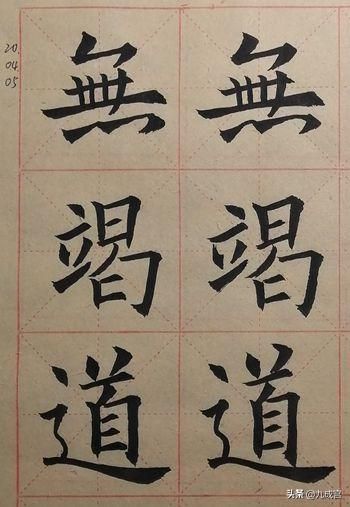 20.
04.
05
無 無
竭 竭
道 道
头条@九成宫